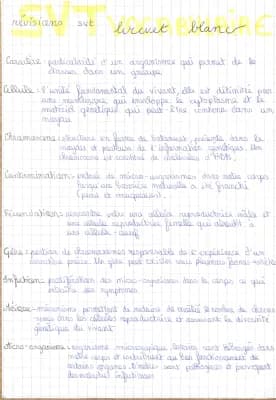 SVT
révisions svt brevet blanc
Caractère : particularité d'un organisme qui permet de le
classer dans un groupe.
Cellule : l'unité fondamental du vivant, elle est délimitée par
une membrane qui enveloppe le cytoplasme et le
matériel génétique qui peut être contenu dans un
noyau
Chromosome : structure en forme de bâtonnet, présente dans le
noyau et porteur de l'information génétique. Un
chromosome est constitué de molécules d'ADN.
Contamination : entrée de micro-organismes dans notre corps
lorsqu'une barrière naturelle a été franchie
(peau et muqueuse).
Fécondation : rencontre entre une cellule reproductrice mâle et
une cellule reproductrice femelle qui aboutit à
une cellule-œuf
Gène : portion de chromosome responsable de
un caractère précis. Un gène peut exister sous plusieurs
Infection : prolifération des micro-organismes dans le corps, ce qui
entraîne des symptômes
Méiose : mécanisme permettant de réduire de moitié le nombre de chromo
somes dans les cellules reproductrices et assurant la diversité
génétique du vivant
Micro-organisme : organisme microscopique, certains sont hébergés dans
notre corps et contribuent au bon fonctionnement de
certains organes. D'autres sont pathogènes et provoquent
des maladies infectieuses